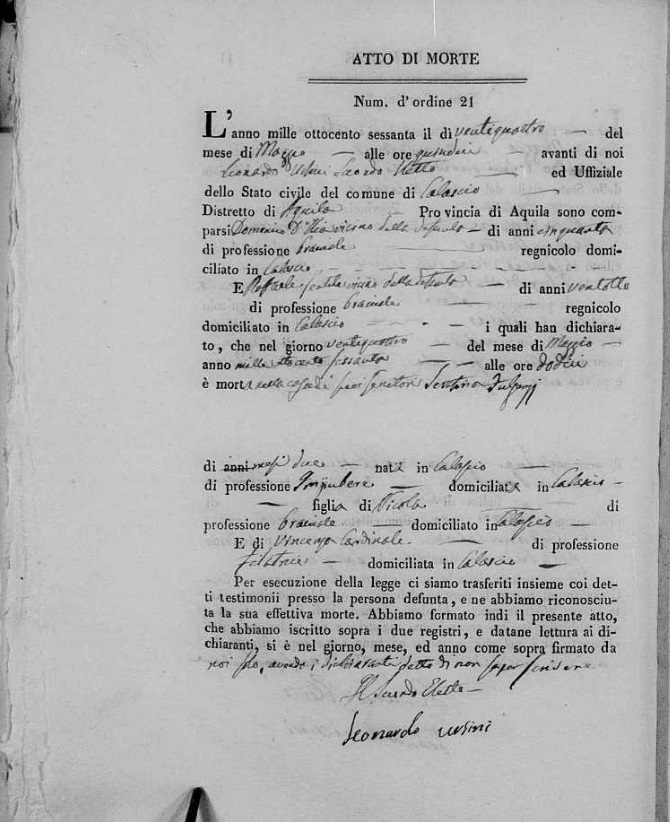 ATTO DI MORTE
Num. d'ordine 21
L'anno mille ottocento sessanta il dì ventiquattro — del
mese di Maggio — alle ore quindici — avanti di noi
Leonardo Ursini Secondo Eletto ed Uffiziale
dello Stato civile del comune di Calascio —
Distretto di Aquila — Provincia di Aquila sono com-
parsi Domenico D'Alio vicino della defunta — di anni cinquanta
di professione bracciale regnicolo domi-
ciliato in Calascio —
E Raffaele Gentile vicino della defunta — di anni ventotto
di professione bracciale — regnicolo
domiciliato in Calascio — i quali han dichiara-
to, che nel giorno ventiquattro — del mese di Maggio —
anno mille ottocento sessanta — alle ore dodici
è morta nella casa de' suoi genitori Fulgenzi
di anni mesi due — nata in Calascio —
di professione Impubere — domiciliata in Calascio —
— figlia di Nicola — di
professione bracciale — domiciliato in Calascio —
E di Vincenza Cardinale — di professione
filatrice — domiciliata in Calascio —
Per esecuzione della legge ci siamo trasferiti insieme coi det-
ti testimonii presso la persona defunta, e ne abbiamo riconosciu-
ta la sua effettiva morte. Abbiamo formato indi il presente atto,
che abbiamo iscritto sopra i due registri, e datane lettura ai di-
chiaranti, si è nel giorno, mese, ed anno come sopra firmato da
noi solo, avendo i dichiaranti detto di non saper scrivere
Il Secondo Eletto —
Leonardo Ursini